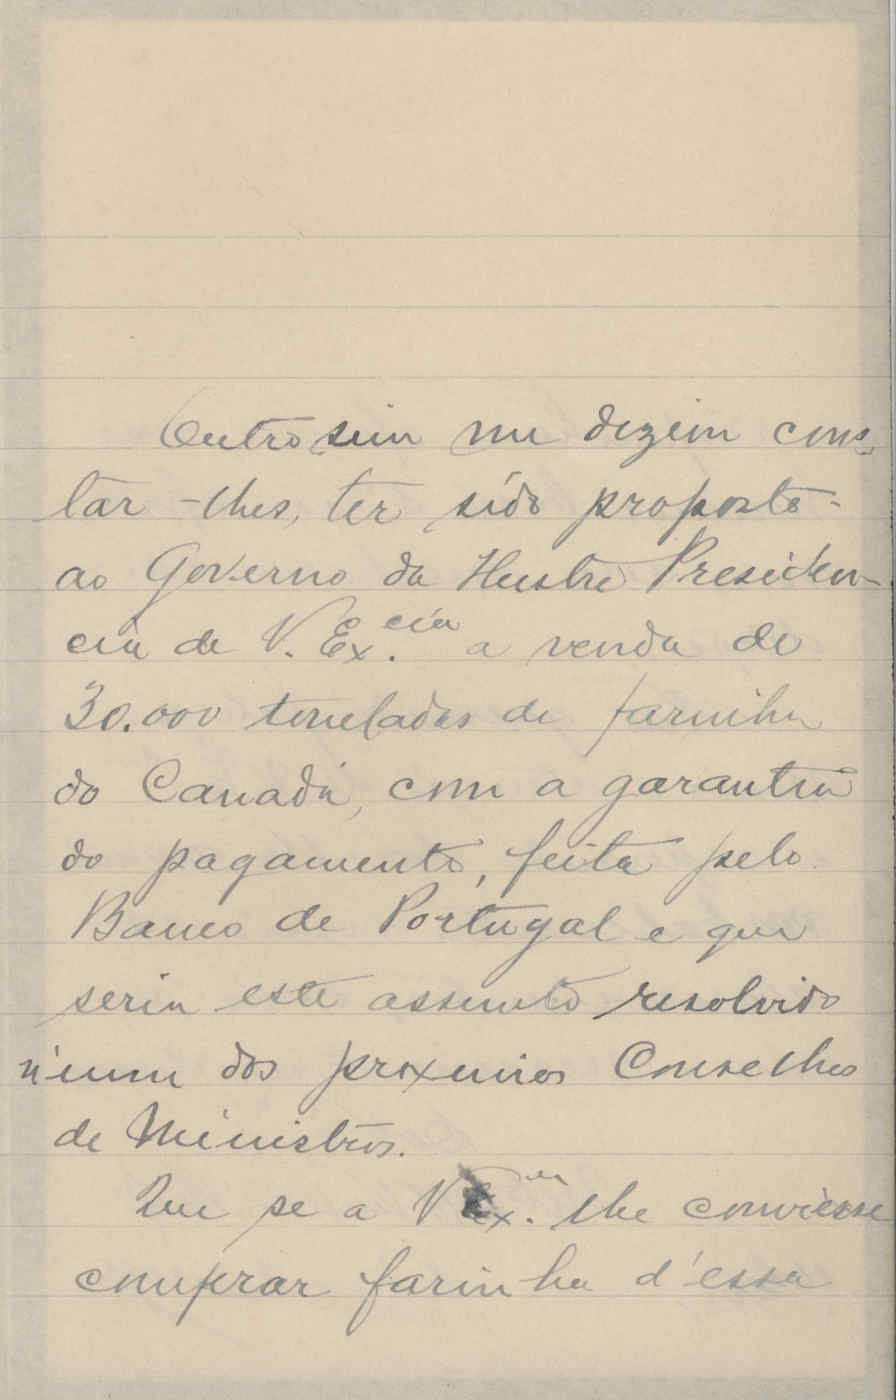 Outrosim me dizem cons-
tar-lhes, ter sido proposto
ao Governo da Illustre Presiden-
cia de V. Ex.cia a venda de
30.000 toneladas de farinha
do Canadá, com a garantia
do pagamento, feita pelo
Banco de Portugal e que
seria este assumto resolvido
n'um dos proximos Conselhos
de Ministros.
Que se a V Ex.cia lhe conviesse
comprar farinha d'essa